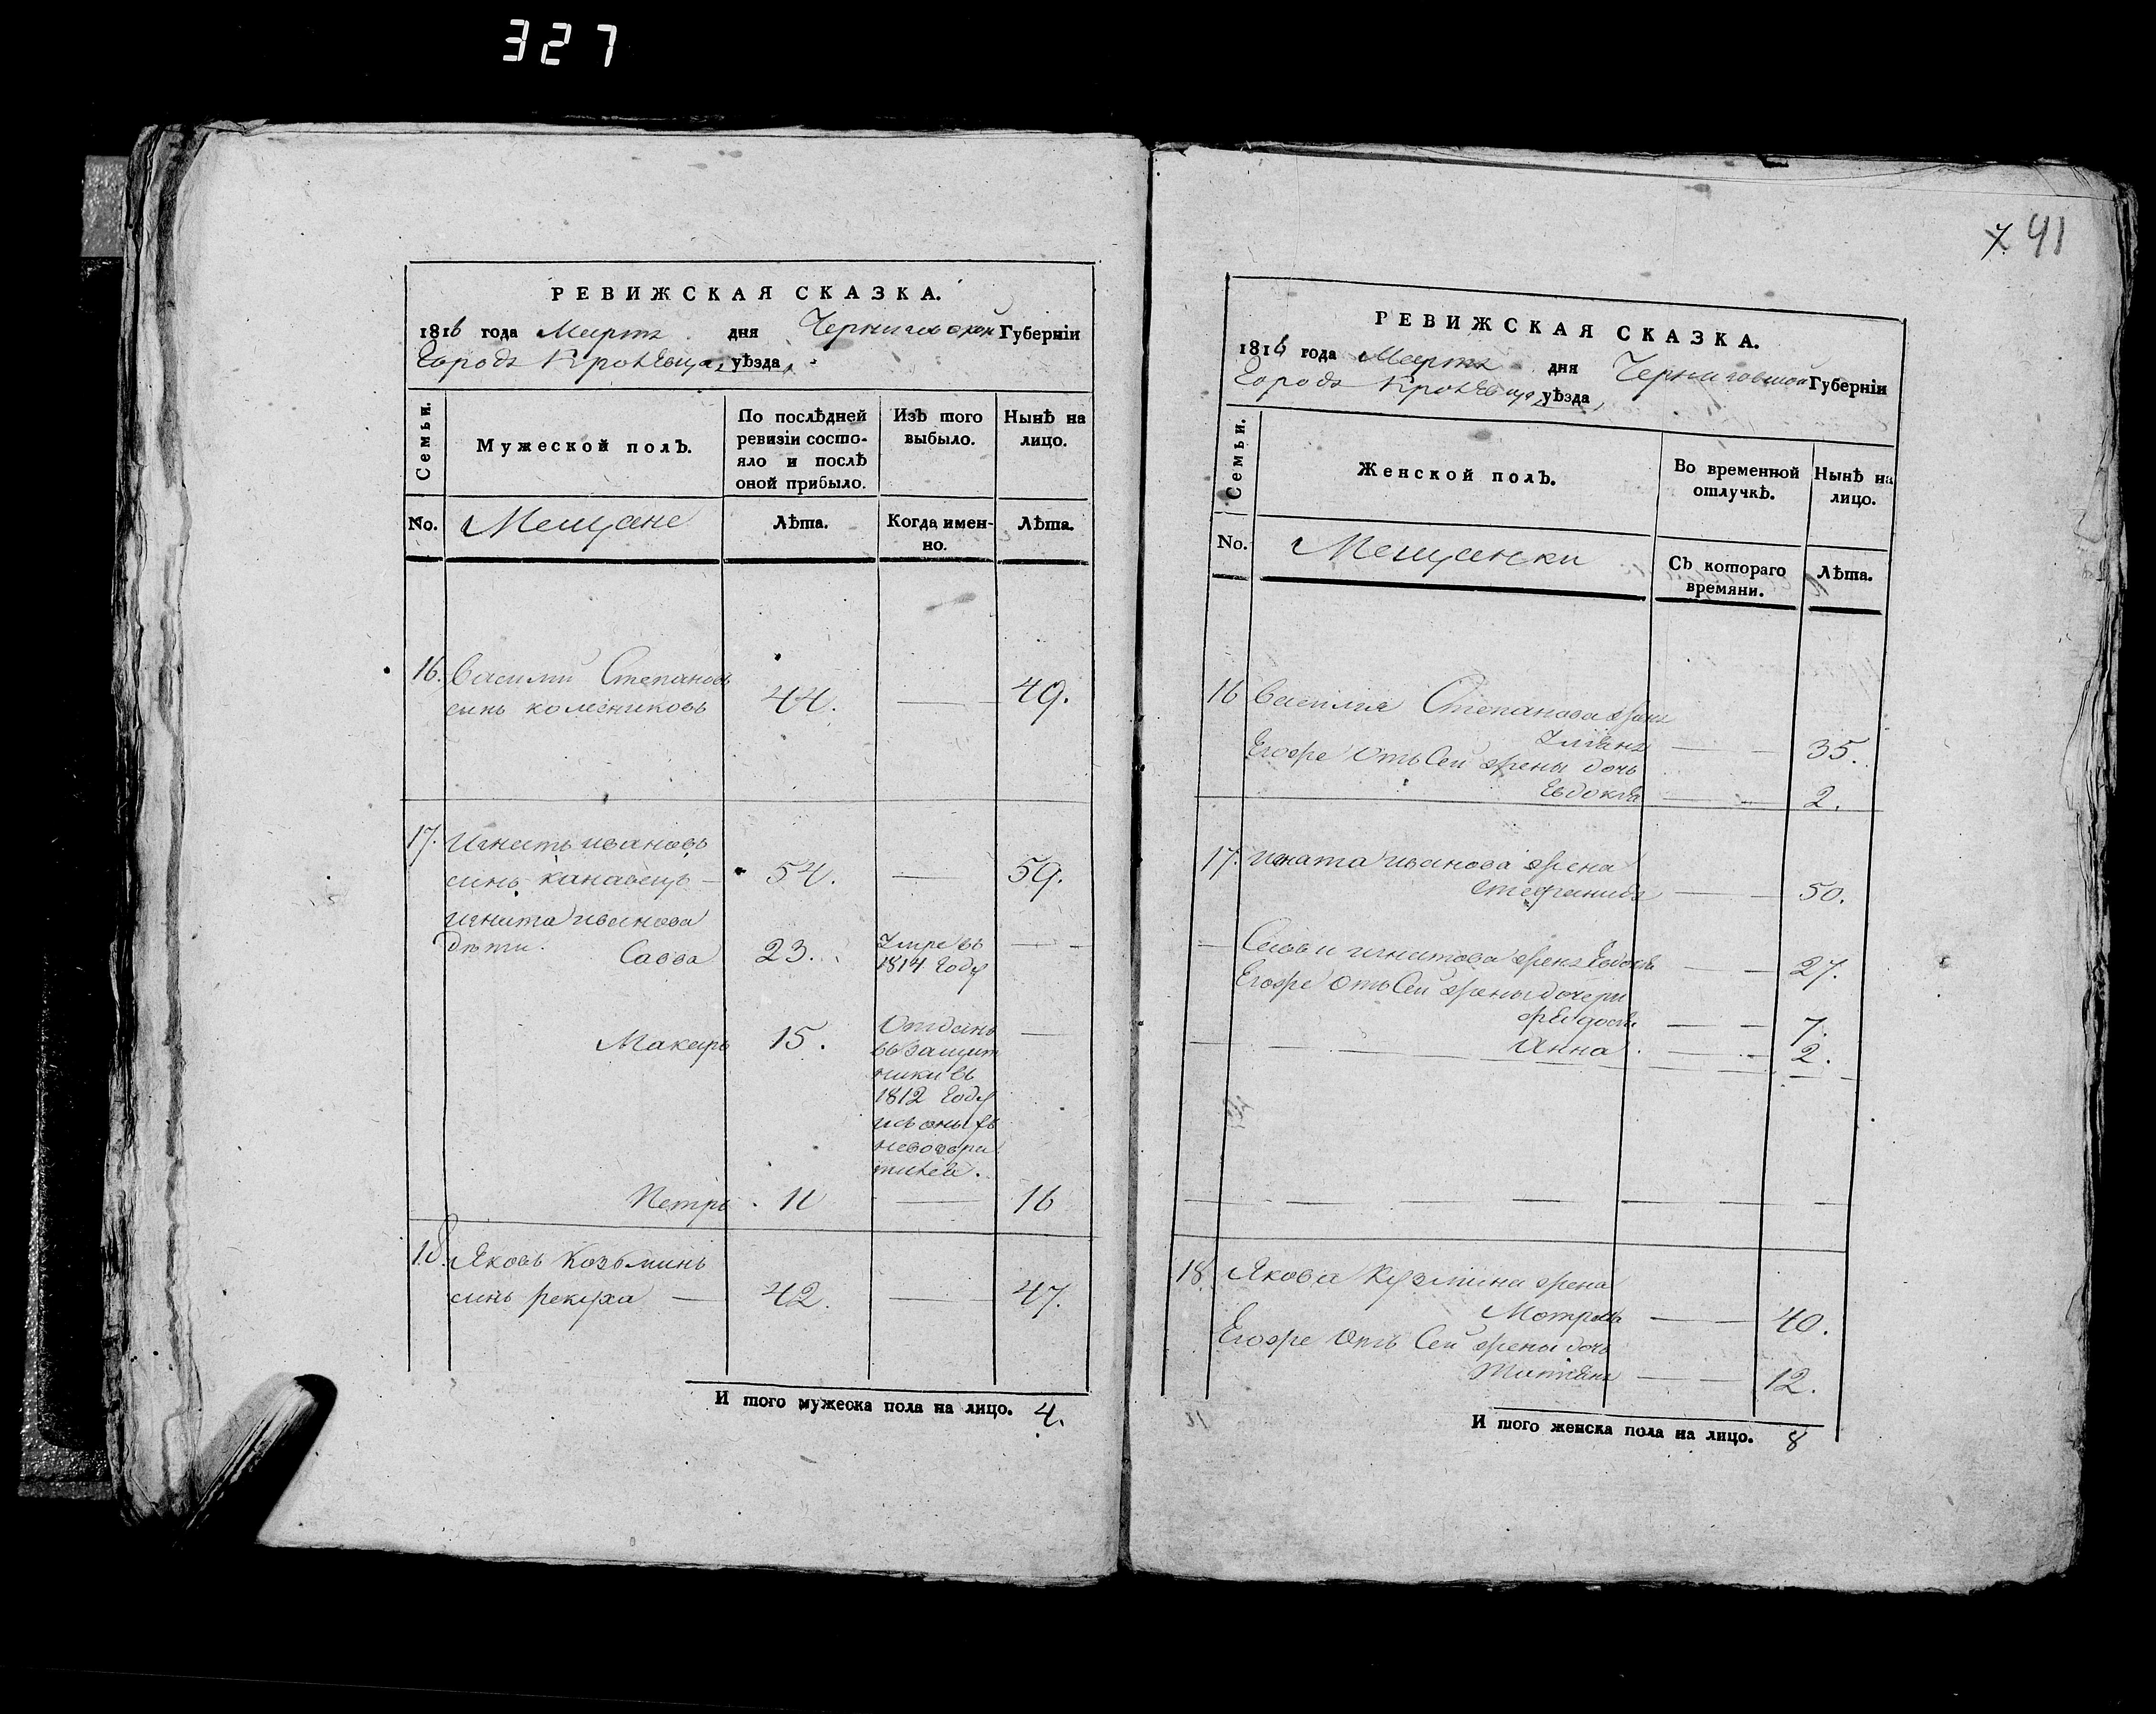 327
РЕВИЖСКАЯ СКАЗКА.
1816 года Мартъ дня Черниговской Губерніи
Города Кролевца, уѣзда
Семьи.
Мужеской полъ.
По послѣдней ревизіи состояло и послѣ оной прибыло.
Изъ того выбыло.
Нынѣ на лицо.
No.
Мещане
Лѣта.
Когда именно.
Лѣта.
16. Василий Степановъ
синъ колесниковъ 44. — 49.
17. Игнатъ Ивановъ
синъ канавецъ — 54. — 59.
Игната Иванова
дѣти. Савва 23. Умре въ 1814 году —
Макаръ 15. Отданъ
въ защит
ники въ
1812 году
изъ оныхъ
невозвра
тился.
Петръ 11 — 16
18. Яковъ Козьминъ
синъ рекуха — 42. — 47.
И того мужеска пола на лицо. 4.
7. 41
РЕВИЖСКАЯ СКАЗКА.
1816 года Мартъ дня Черниговской Губерніи
Города Кролевца, уѣзда
Семьи.
Женской полъ.
Во временной отлучкѣ.
Нынѣ на лицо.
No.
Мещанки
Съ котораго времяни.
Лѣта.
16 Василия Степанова жена
Улияна — 35.
Егоже отъ Сей жены дочь
Евдокия — 2.
17. Игната Иванова жена
Стефанида — 50.
Саввы Игнатова жена Евдокия — 27.
Егоже отъ Сей жены дочери
— 7.
Анна — 2.
18 Якова Кузмина жена
Мотрона — 40.
Егоже отъ Сей жены дочь
Татияна — 12.
И того женска пола на лицо. 8